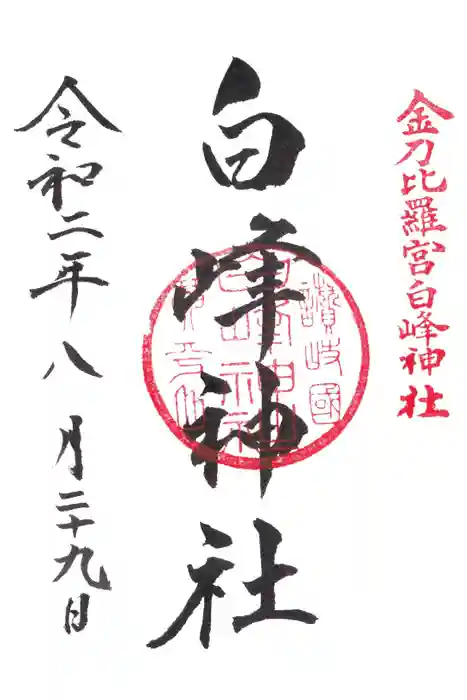 金刀比羅宮白峰神社
白峰神社
讃岐國
令和二年八月二十九日